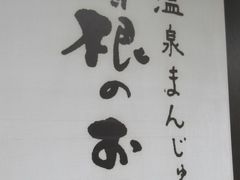 温泉まんじゅ
根のお